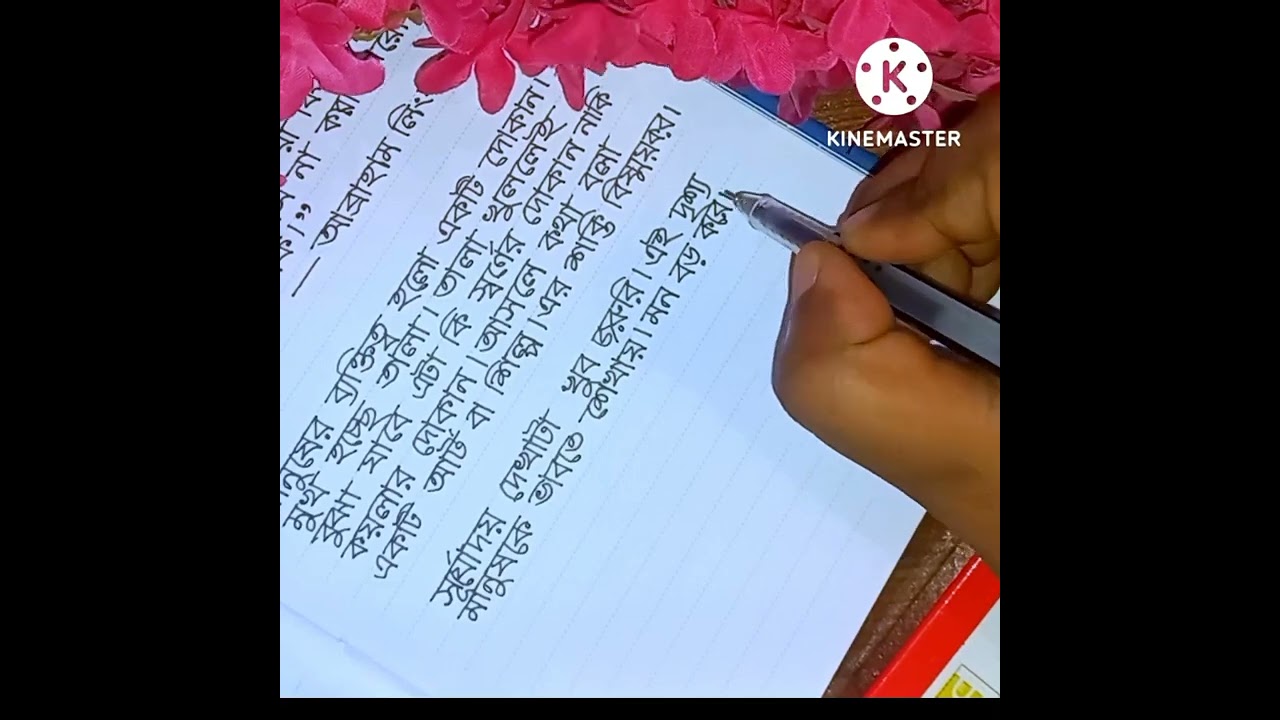 না
— আব্রাহাম লিং
মানুষের ব্যক্তিত্ব হলো একটি দোকান।
মুখ হচ্ছে তালা। তালা খুললেই
বুঝা যাবে এটা কি স্বর্ণের দোকান নাকি
কয়লার দোকান। আসলে কথা বলা
একটি আর্ট বা শিল্প। এর শক্তি বিস্ময়কর।
সূর্যোদয় দেখাটা খুব জরুরি। এই দৃশ্য
মানুষকে ভাবতে শেখায়। মন বড় করে।
KINEMASTER